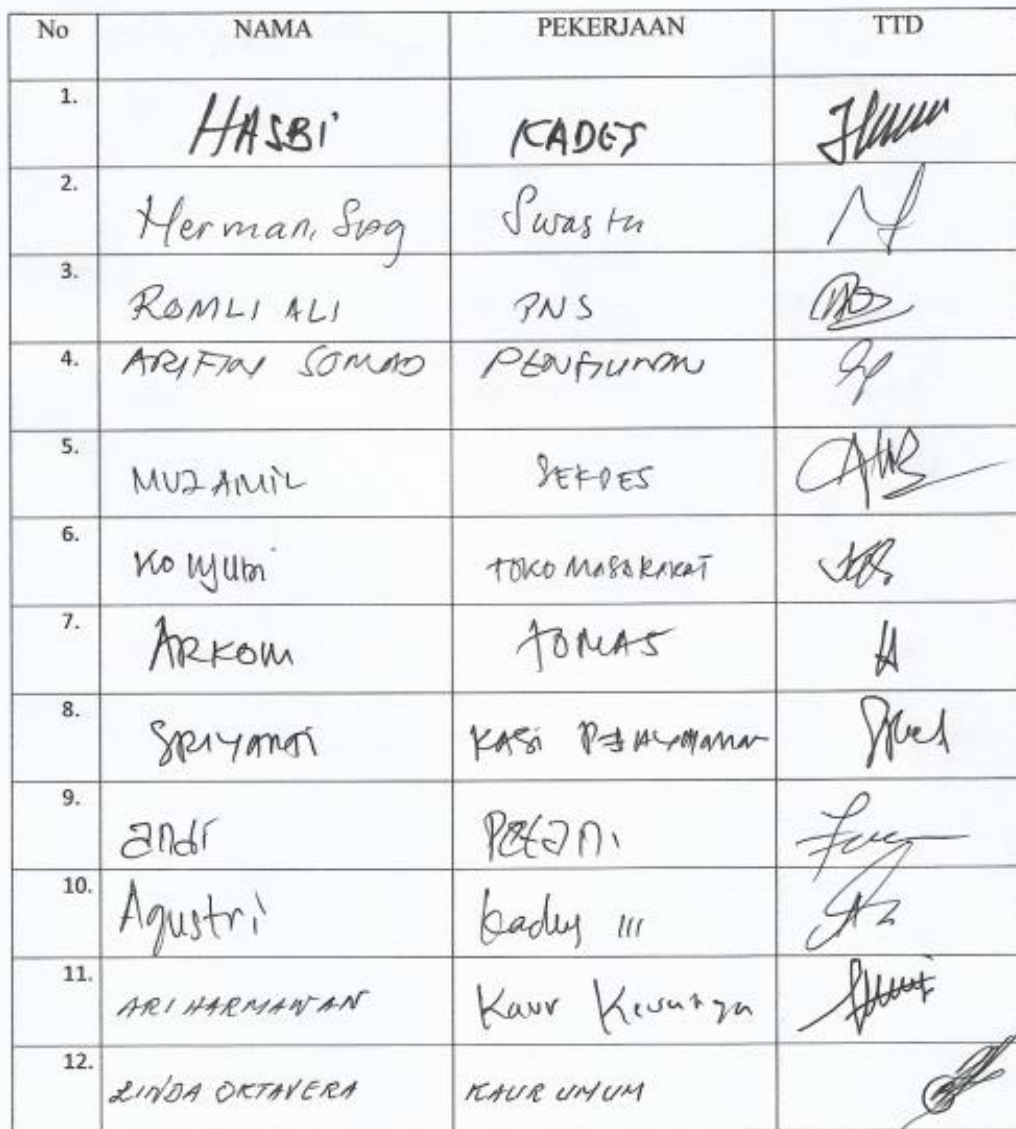 No NAMA PEKERJAAN TTD
1. HASBI KADES
2. Herman, Swasta
3. ROMLI ALI PNS
4. ARIFIN SOMAD PENSIUNAN
5. MUZAMIL SEKDES
6. TOKO MASARAKAT
7. ARKOM TOMAS
8. SRIYANTI KASI
9. andi Petani
10. Agustri kadus III
11. ARI HARMAWAN Kaur
12. LINDA OKTAVERA KAUR UMUM